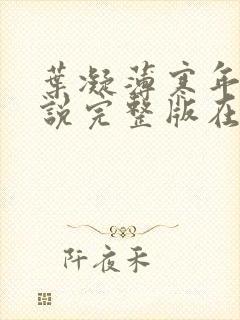 葉凝薄寒年
說完整版在
阡夜禾